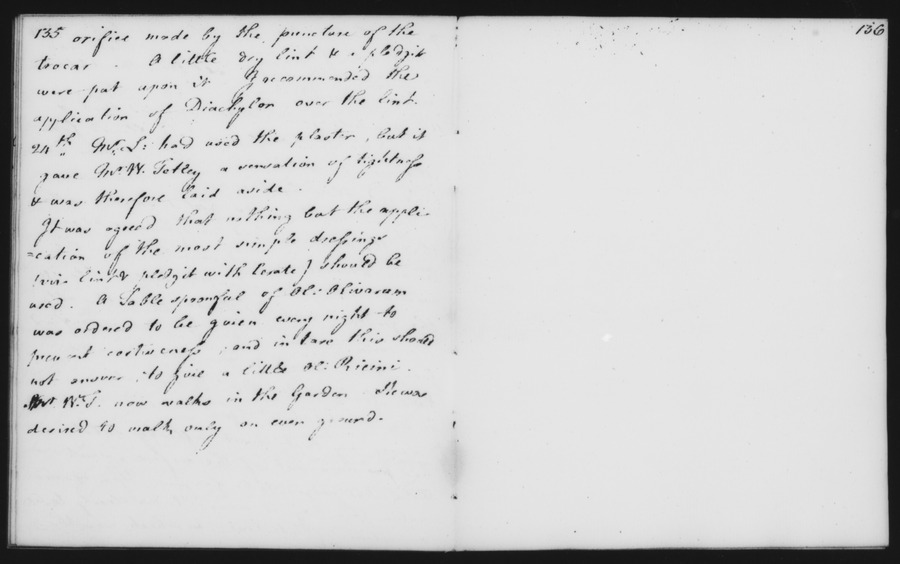 135 orifice made by the puncture of the
trocar. A little dry lint & a pledgit
were put upon it I recommended the
application of Diachylon over the lint.
24th Mr. L: had used the plaster, but it
gave Mr. W. Tetley a sensation of tightness
& was therefore laid aside.
It was agreed that nothing but the appli-
=cation of the most simple dressings
(viz lint & pledgit with Cerate) should be
used. A Table spoonful of Ol: Olivarum
was ordered to be given every night to
prevent costiveness, and in case this should
not answer, to give a little Ol: Ricini.
Mr. W. T. now walks in the Garden. He was
desired to walk only on even ground.
136